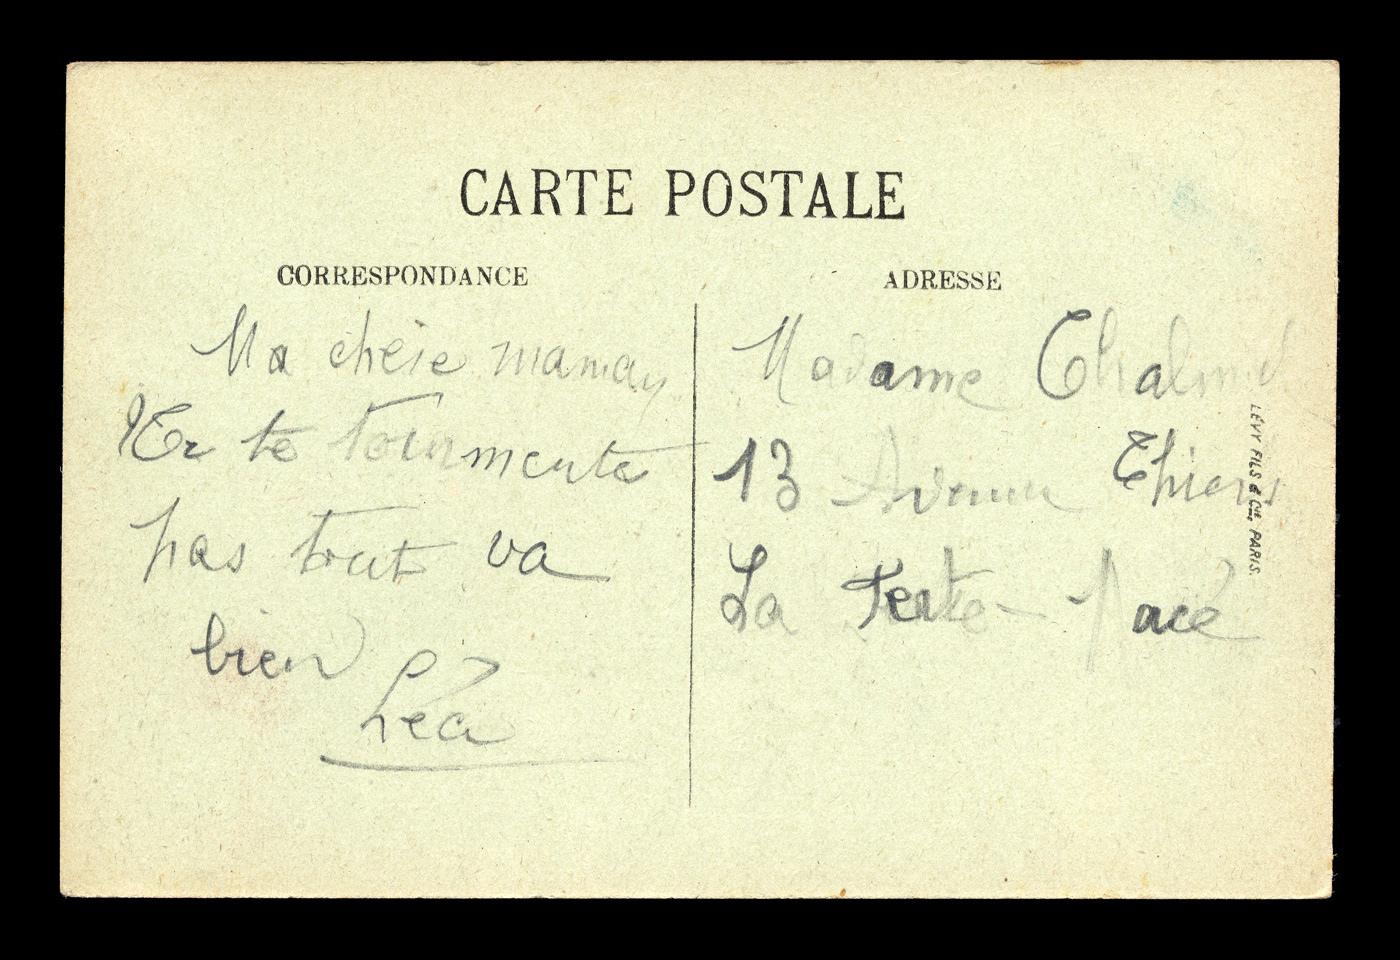 CARTE POSTALE
CORRESPONDANCE
Ma chère maman
Ne te tourmente
pas tout va
bien
Léa
ADRESSE
Madame
13 Avenue Thiers
La Ferté-Macé
LÉVY FILS & Cie, PARIS.